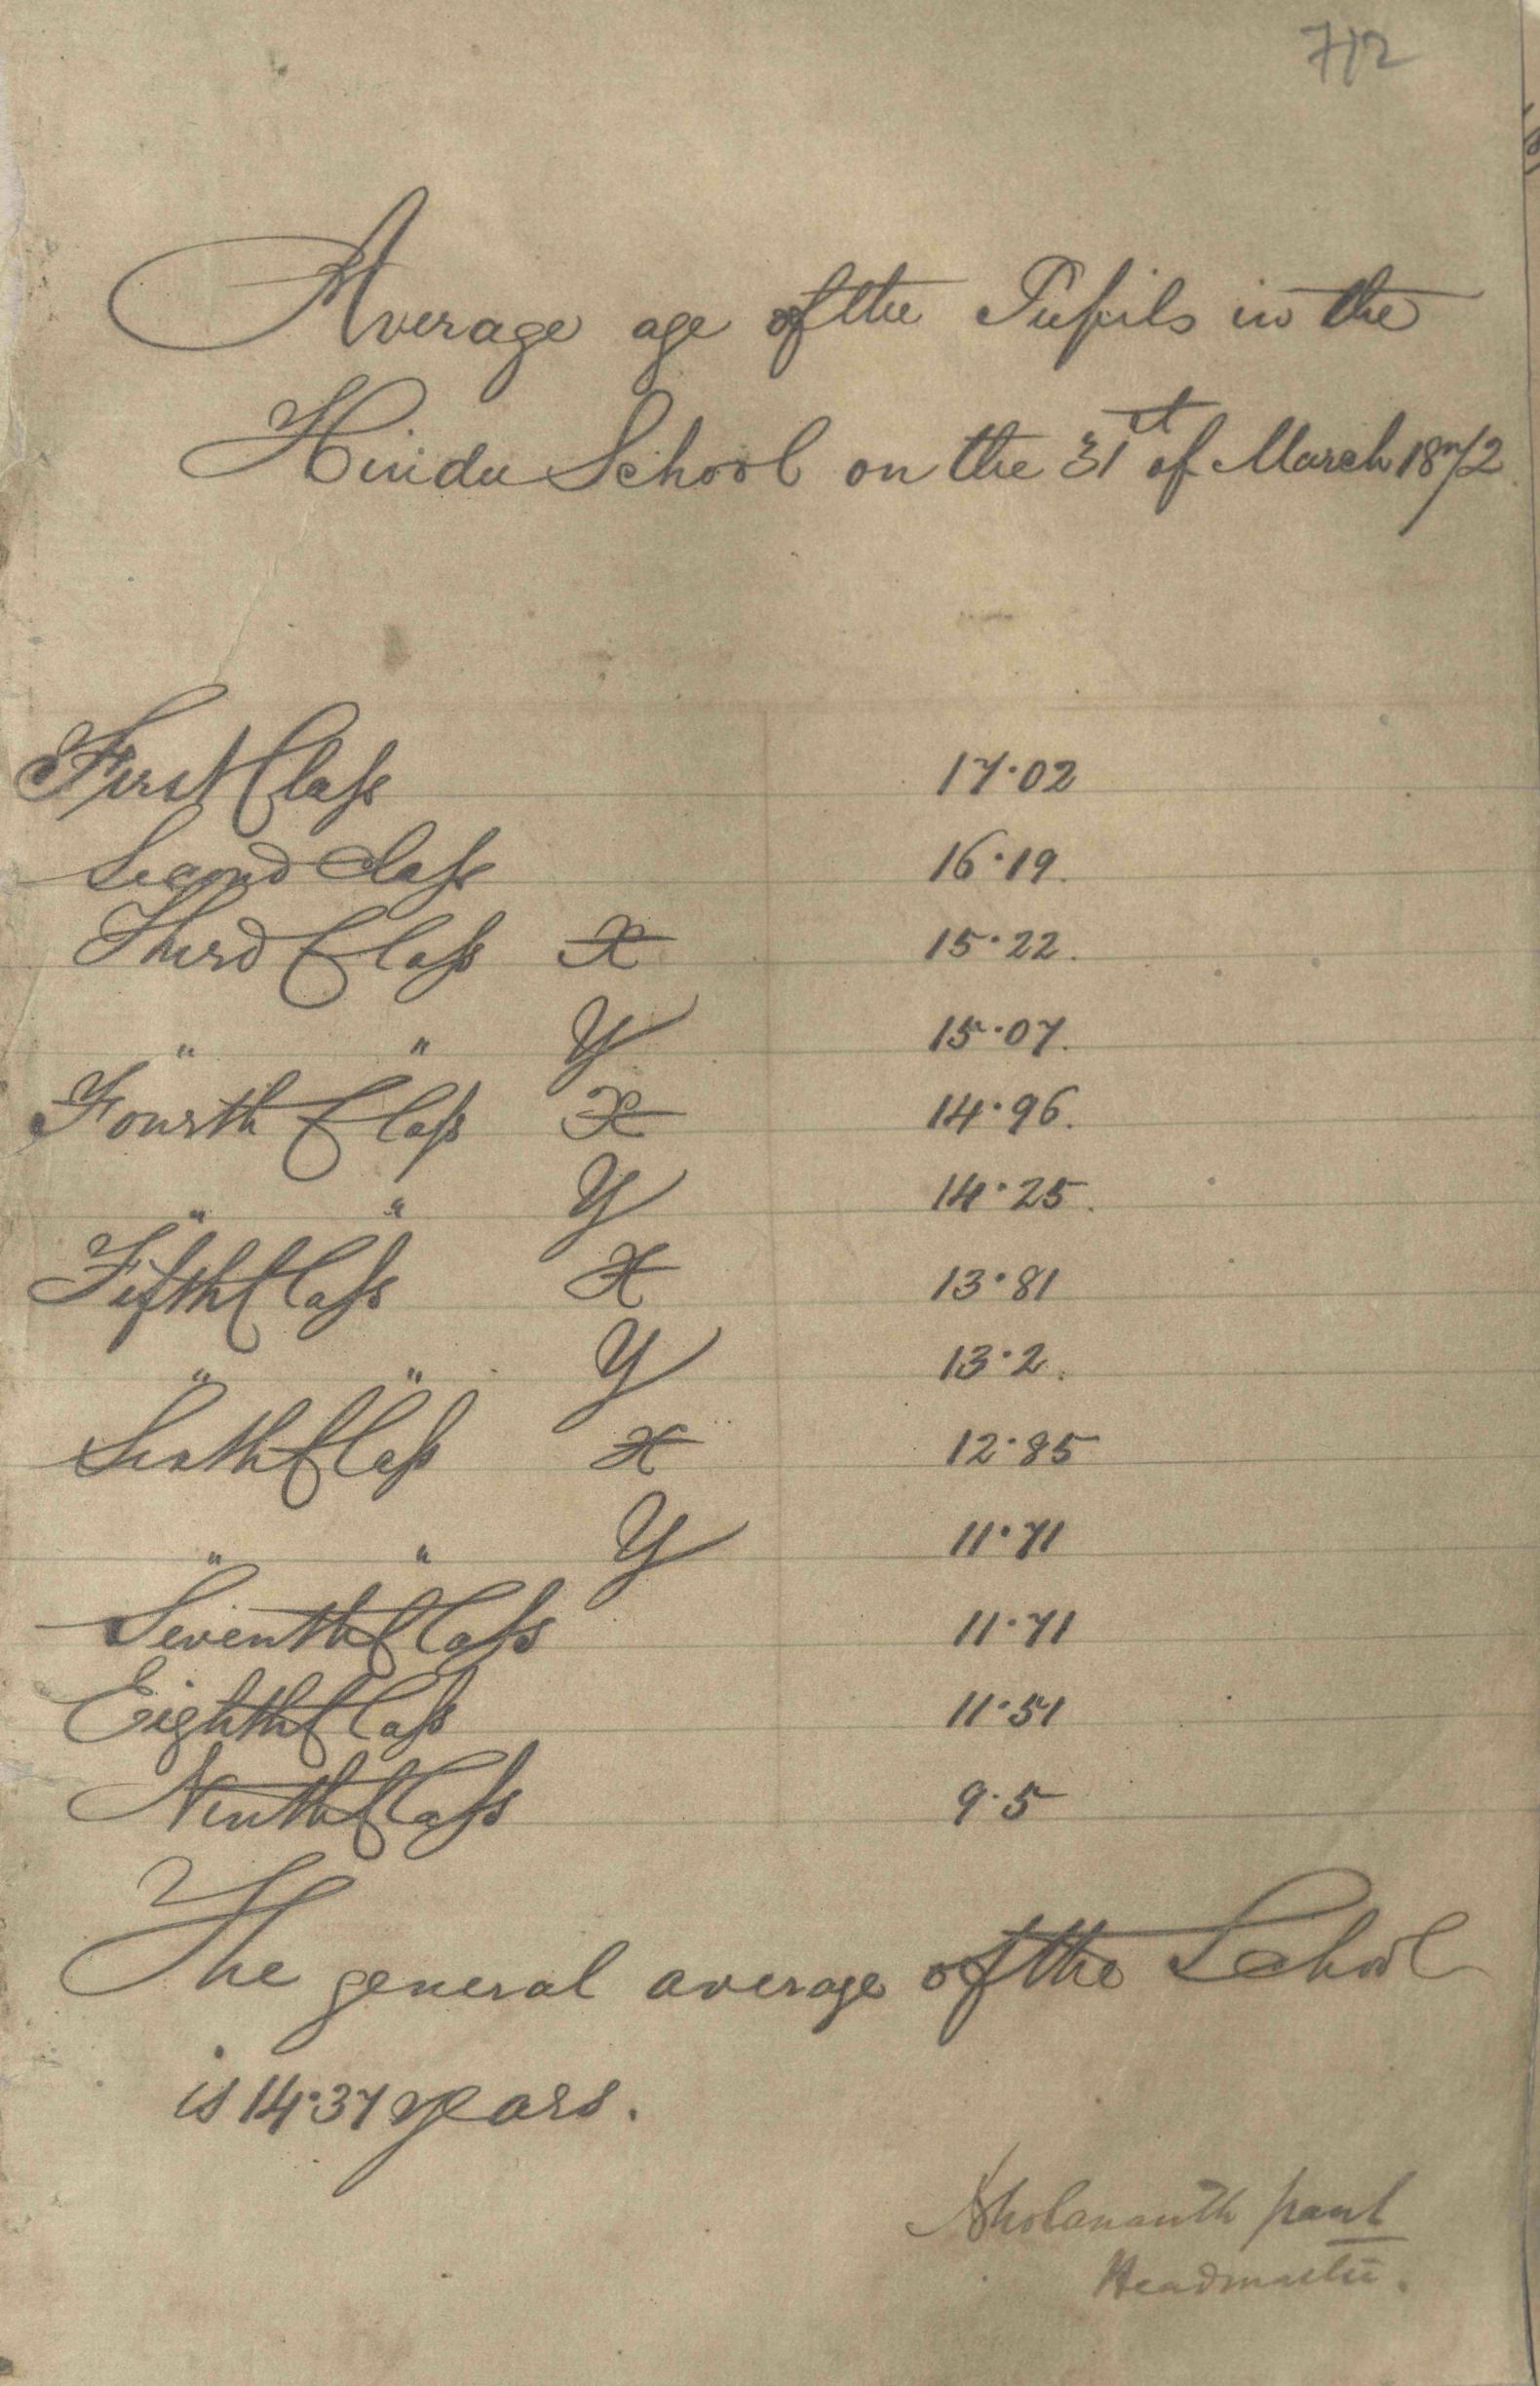 712
Average age of the Pupils in the
Hindu School on the 31st of March 1872
First Class 17.02
Second Class 16.19.
Third Class X 15.22.
" " Y 15.07.
Fourth Class X 14.96.
" " Y 14.25.
Fifth Class X 13.81
" " Y 13.2.
Sixth Class X 12.85
" " Y 11.71
Seventh Class 11.71
Eighth Class 11.51
Ninth Class 9.5
The general average of the School
is 14.37 years.
Bholanauth Paul
Headmaster.